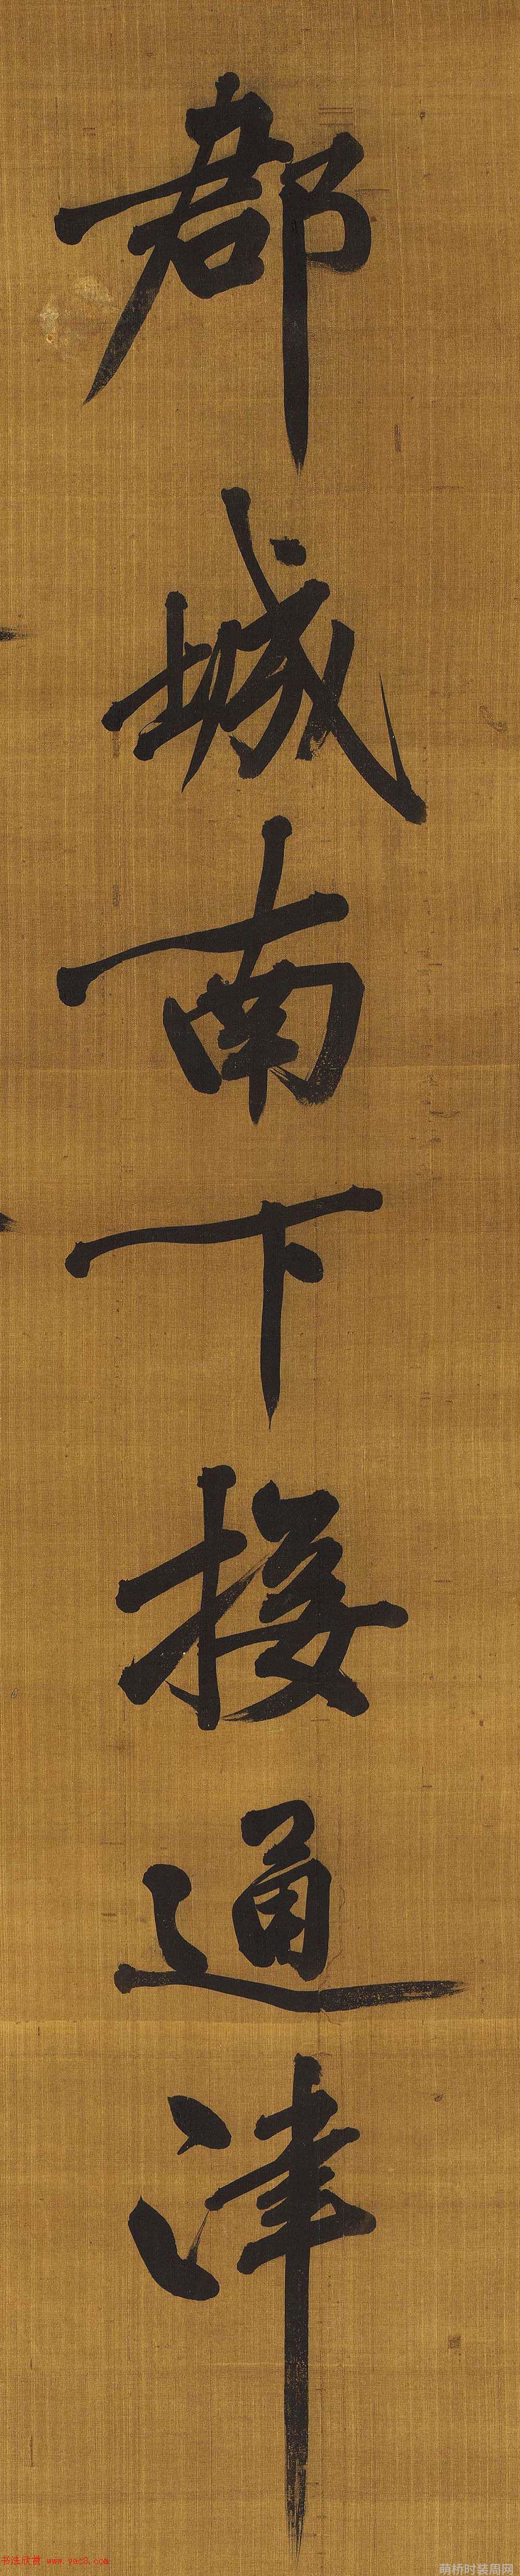 都城南下接通津
书法欣赏 www.yac8.com
萌桥时装周网